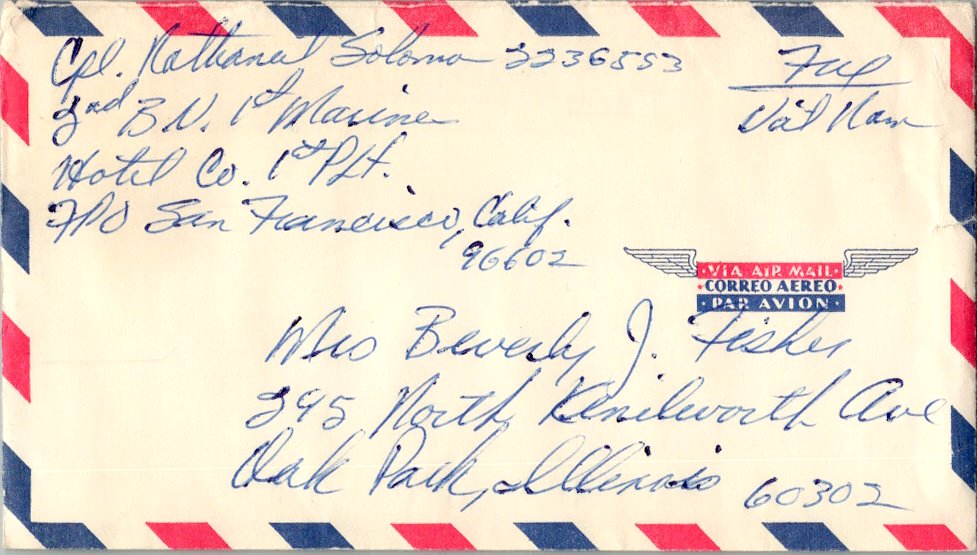 Cpl. Nathanial Solomon 2236553
2nd B.N. 1st Marine
Hotel Co. 1st Plt.
FPO San Francisco, Calif.
96602
Free
Viet Nam
VIA AIR MAIL
CORREO AEREO
PAR AVION
Mrs Beverly J. Fisher
295 North Kenilworth Ave
Oak Park, Illinois 60302